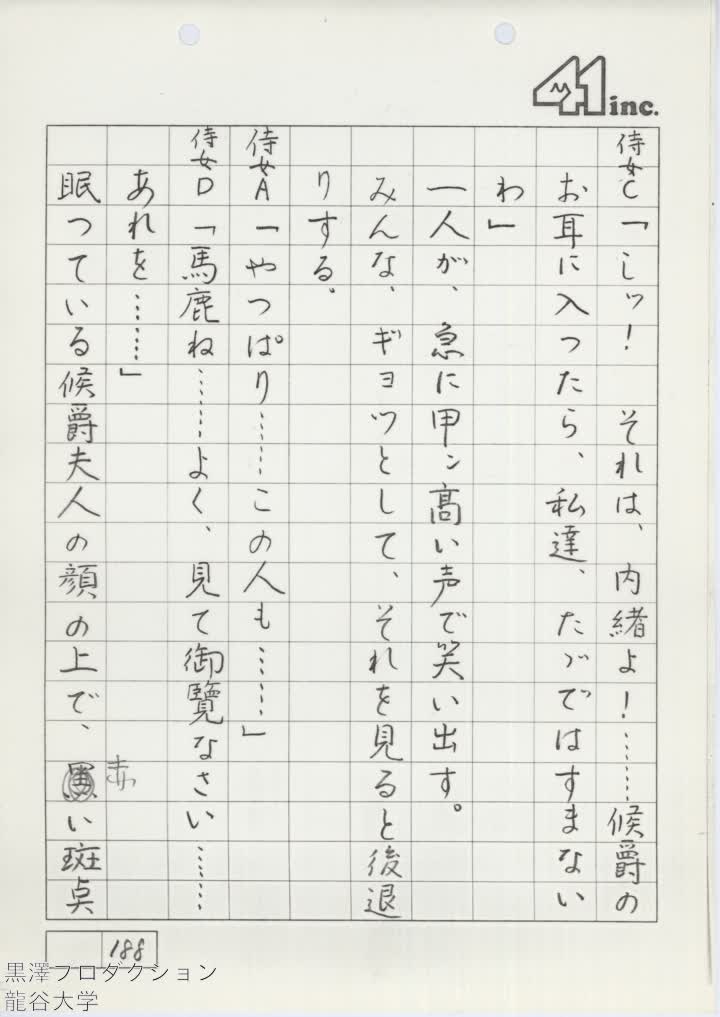 41 inc.
侍女C「しッ！　それは、内緒よ！……候爵の
お耳に入ったら、私達、たゞではすまない
わ」
一人が、急に甲ン高い声で笑い出す。
みんな、ギョッとして、それを見ると後退
りする。
侍女A「やっぱり……この人も……」
侍女D「馬鹿ね……よく、見て御覧なさい……
あれを……」
眠っている候爵夫人の顔の上で、赤い斑点
188
黒澤プロダクション
龍谷大学